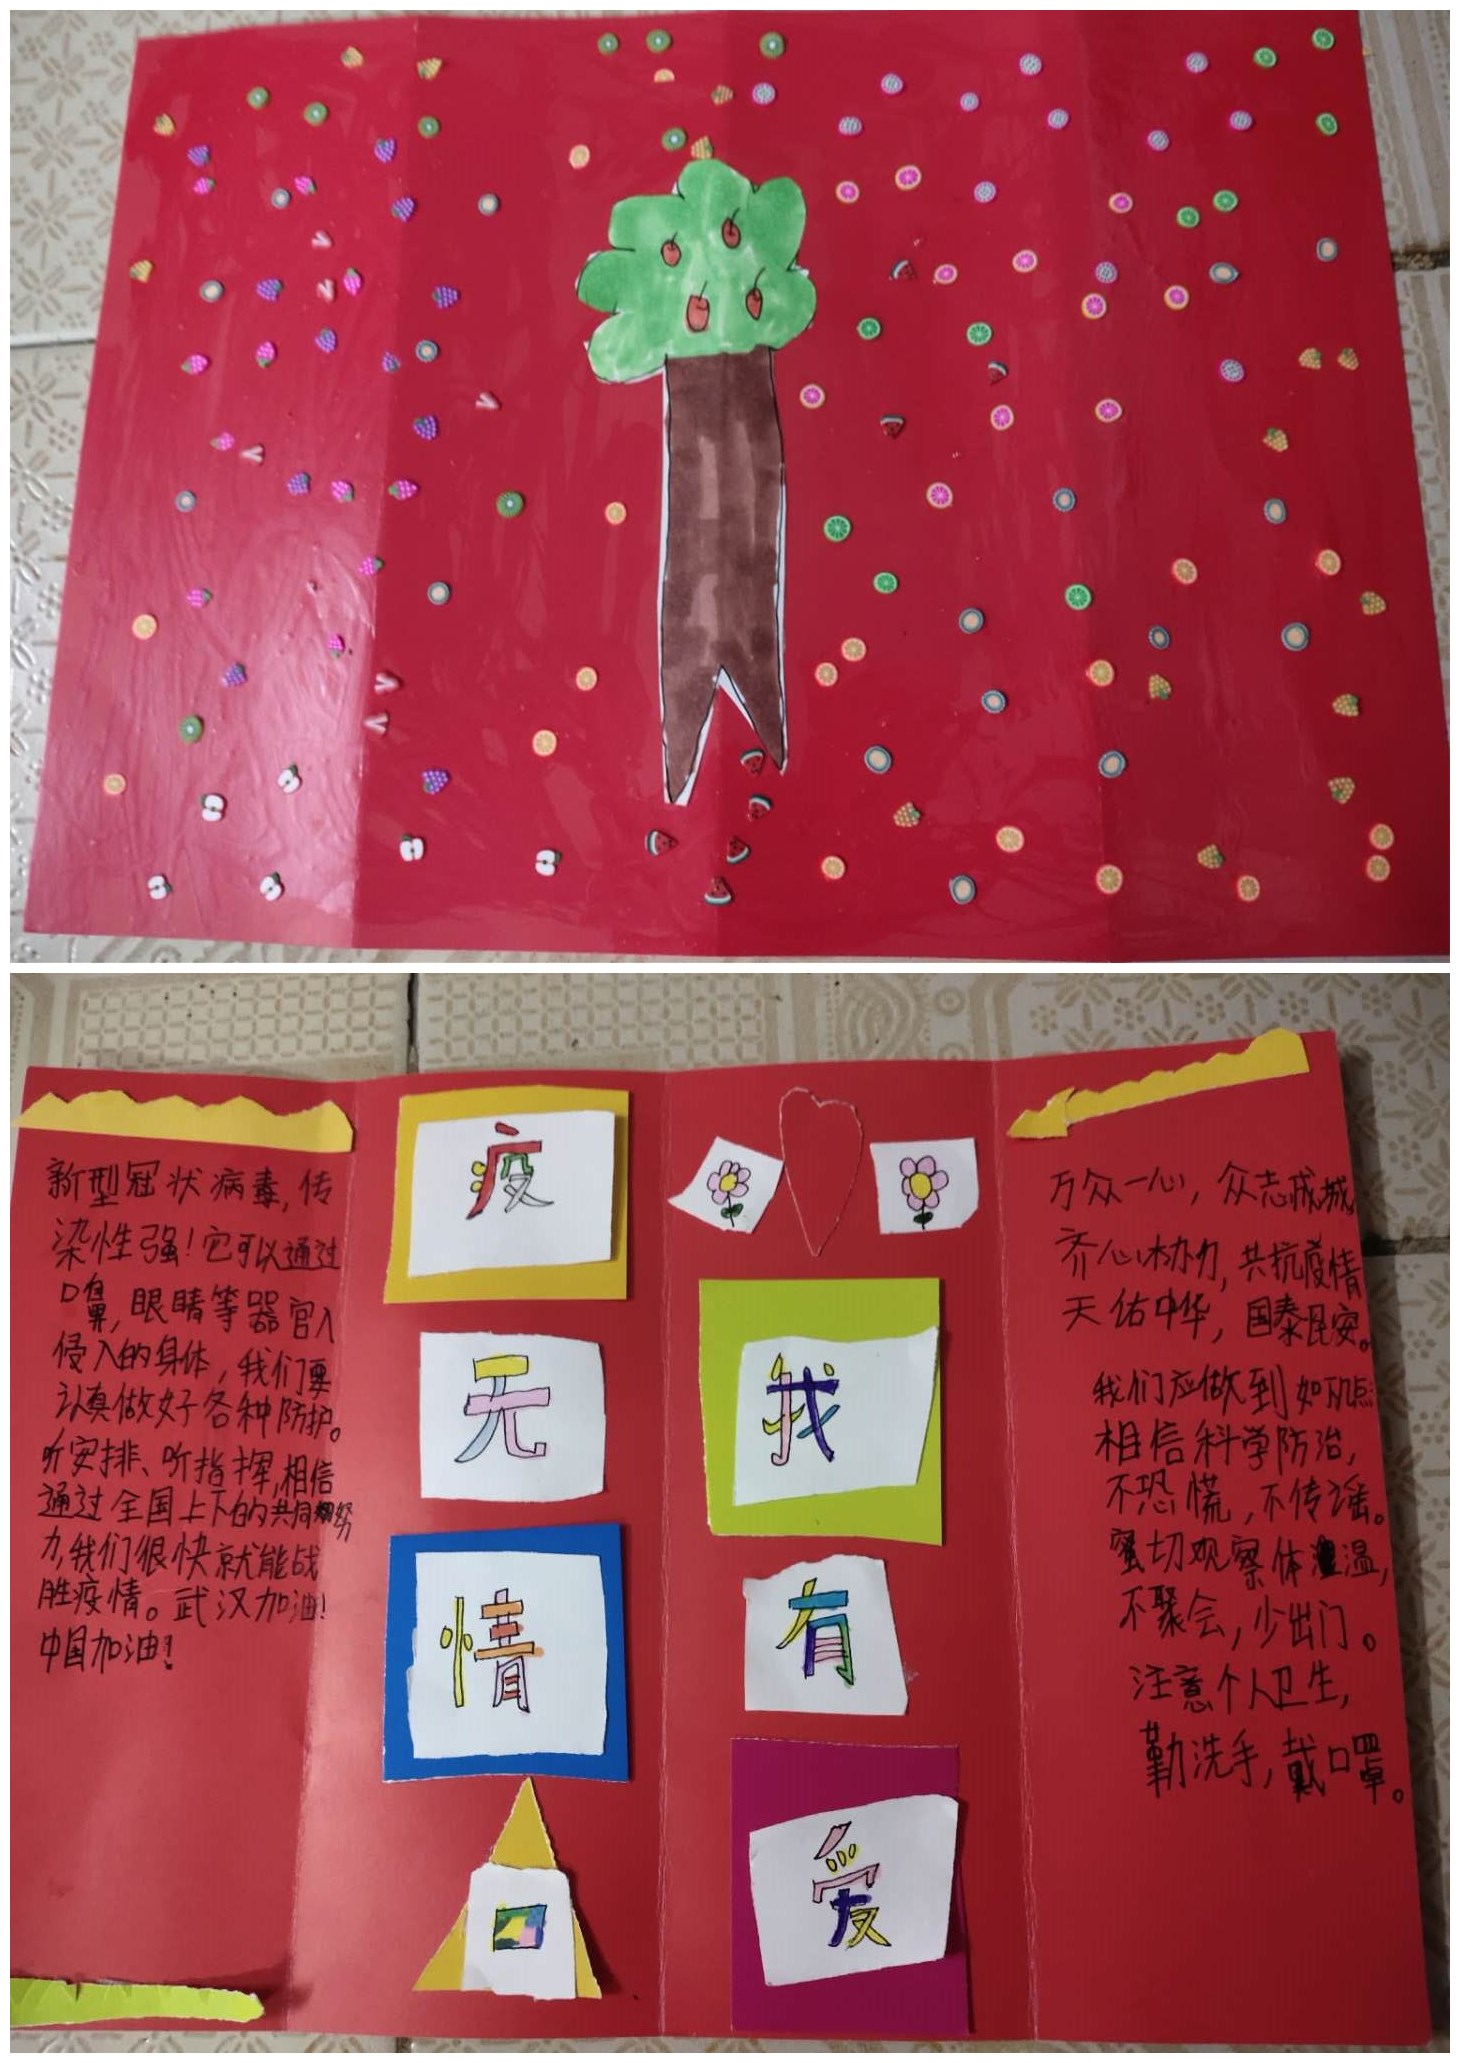 新型冠状病毒，传
染性强！它可以通过
口鼻，眼睛等器官入
侵入的身体，我们要
认真做好各种防护。
听安排、听指挥，相信
通过全国上下的共同努
力，我们很快就能战
胜疫情。武汉加油！
中国加油！
疫
无
情
我
有
爱
万众一心，众志成城
齐心协力，共抗疫情
天佑中华，国泰民安。
我们应做到如下几点
相信科学防治，
不恐慌，不传谣。
密切观察体温，
不聚会，少出门。
注意个人卫生，
勤洗手，戴口罩。